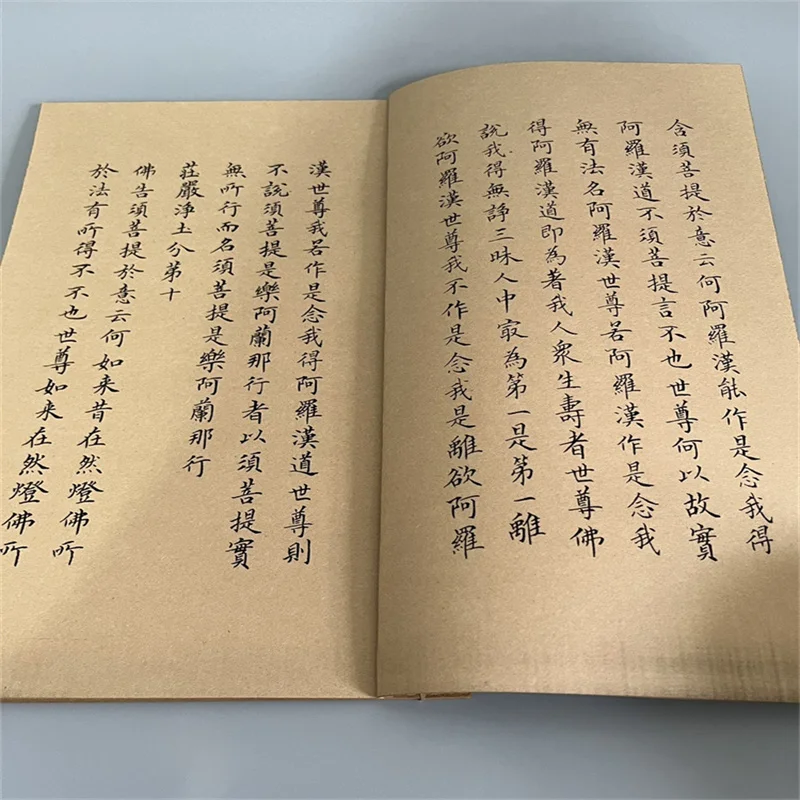 含須菩提於意云何阿羅漢能作是念我得
阿羅漢道不須菩提言不也世尊何以故實
無有法名阿羅漢世尊若阿羅漢作是念我
得阿羅漢道即為著我人衆生壽者世尊佛
說我得無諍三昧人中冣為第一是第一離
欲阿羅漢世尊我不作是念我是離欲阿羅
漢世尊我若作是念我得阿羅漢道世尊則
不說須菩提是樂阿蘭那行者以須菩提實
無所行而名須菩提是樂阿蘭那行
莊嚴淨土分第十
佛告須菩提於意云何如来昔在然燈佛所
於法有所得不不也世尊如来在然燈佛所